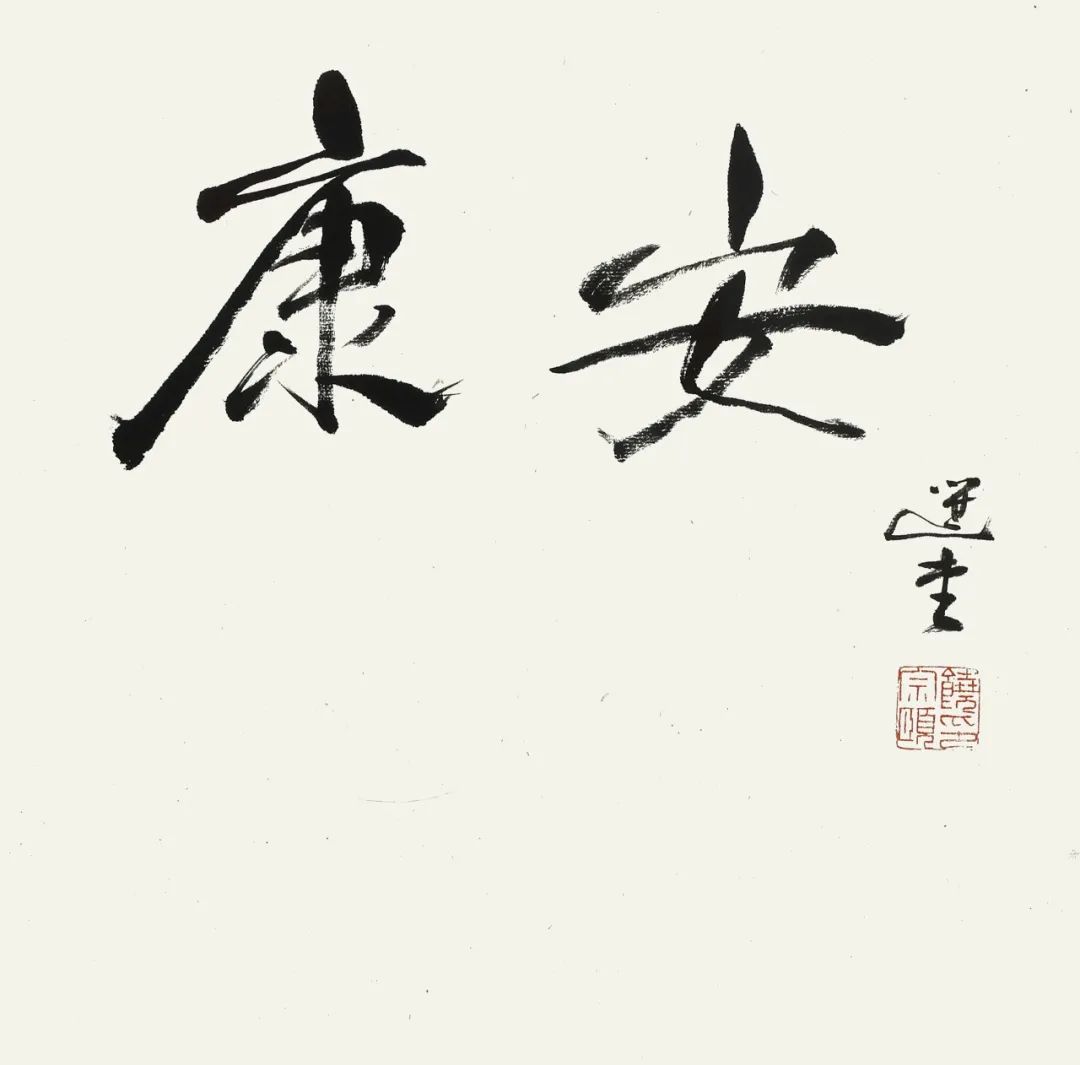 康安
選堂
饒氏宗頤